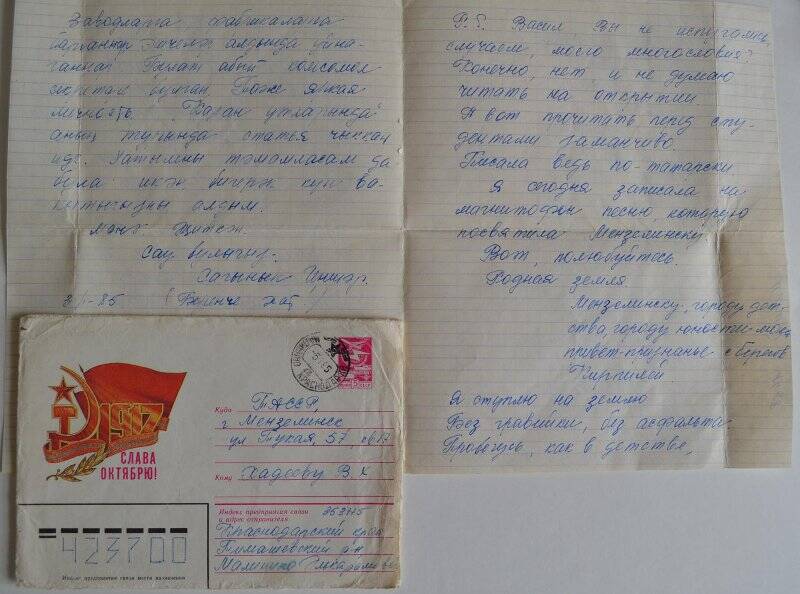 Заводлата
алдында
абый комсомол
булган. Даже яркая
личность. "Казан утларында"
аның турында статья чыккан
иде. Хатымны тәмамласам да
була икән бигрәк күп ва-
кытыгызны алдым.
Сау булыгыз.
Сагынып
85
(Беренче хат)
P.S. Васил Вы не испугались
случаем моего многословия?
Конечно, нет, и не думаю
читать на открытии
А вот прочитать перед сту-
дентами заманчиво.
Писала ведь по-татарски
Я сегодня записала на
магнитофон песню, которую
посвятила Мензелинску
Вот, полюбуйтесь
Родная земля
Мензелинску, городу дет-
ства, городу юности моей
привет-признанье с берегов
Кирпилей
Я ступлю на землю
Без гравийки, без асфальта
Пробегусь, как в детстве,
1917
СЛАВА
ОКТЯБРЮ!
Куда ТАССР,
г Мензелинск
ул Тукая, 57, кв17
Кому Хадееву В. Х
Индекс предприятия связи
и адрес отправителя 353715
Краснодарский край
Тимашевский р-н
423700
Индекс предприятия связи места назначения